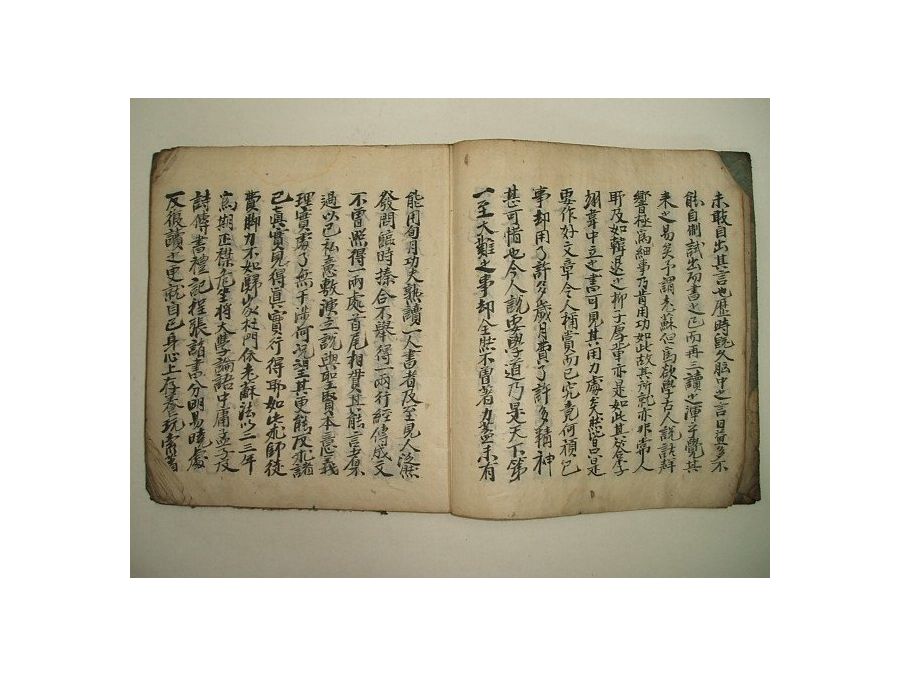 未敢自出其言也歷時旣久胸中之言日益多不
能自制試出而書之已而再三讀之渾々乎覺其
來之易矣予謂老蘇但爲欲學古人說話聲
響極爲細事乃肯用功如此故其所就亦非常人
所及如韓退之柳子厚輩亦是如此其答李
翊韋中立之書可見其用力處矣然皆只是
要作好文章令人稱賞而已究竟何預己
事却用了許多歲月費了許多精神
甚可惜也今人說要學道乃是天下第
一至大難之事却全然不曾著力盖未有
能用旬月功夫熟讀一人書者及至見人泛然
發問臨時揍合不擧得一兩行經傳成文
不曾照得一兩處首尾相貫其能言者不
過以己私意敷演立說與聖賢本意義
理實處了無干涉何況望其更能反求諸
已眞實見得眞實行得耶如此求師徒
費脚力不如歸家杜門依老蘇法以二三年
爲期正襟危坐將大學論語中庸孟子及
詩傳書禮記程張諸書分明易曉處
反復讀之更就自己身心上存養玩索着